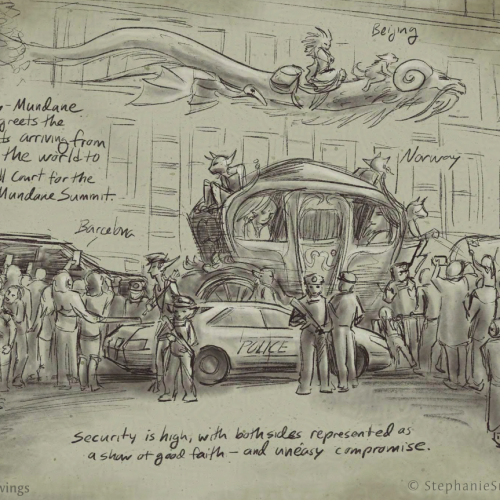 Beijing
- Mundane
greets the
ts arriving from
the world to
ll Court for the
Mundane Summit.
Norway
Barcelona
POLICE
Security is high, with both sides represented as
a show of good faith – and uneasy compromise.
wings
© StephanieS